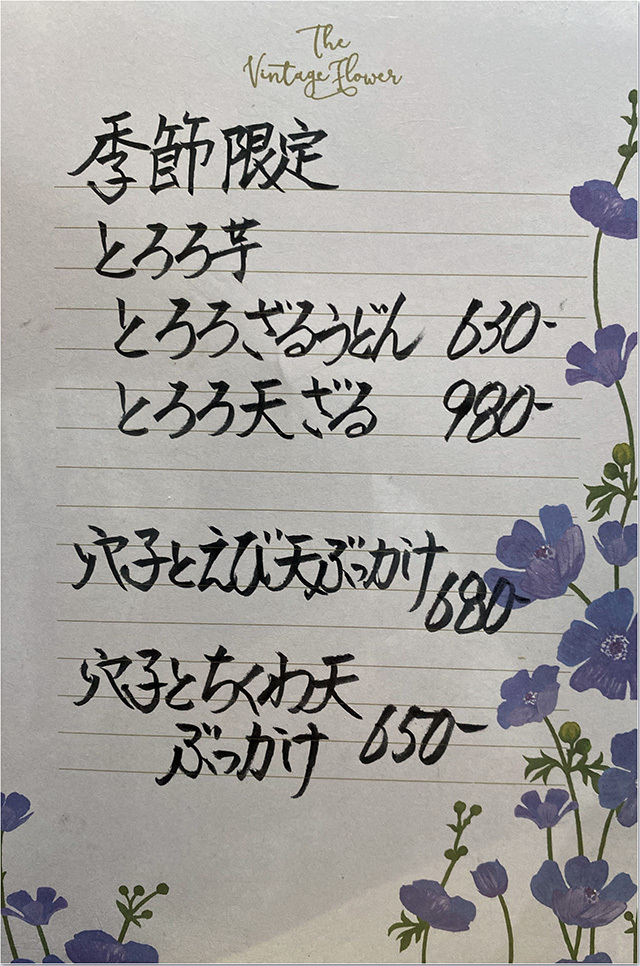 The
Vintage Flower
季節限定
とろろ芋
とろろざるうどん 630-
とろろ天ざる 980-
穴子とえび天ぶっかけ 680-
穴子とちくわ天
ぶっかけ 650-